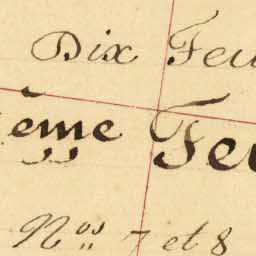 Dix Feu
ème Feu
Nos 7 et 8